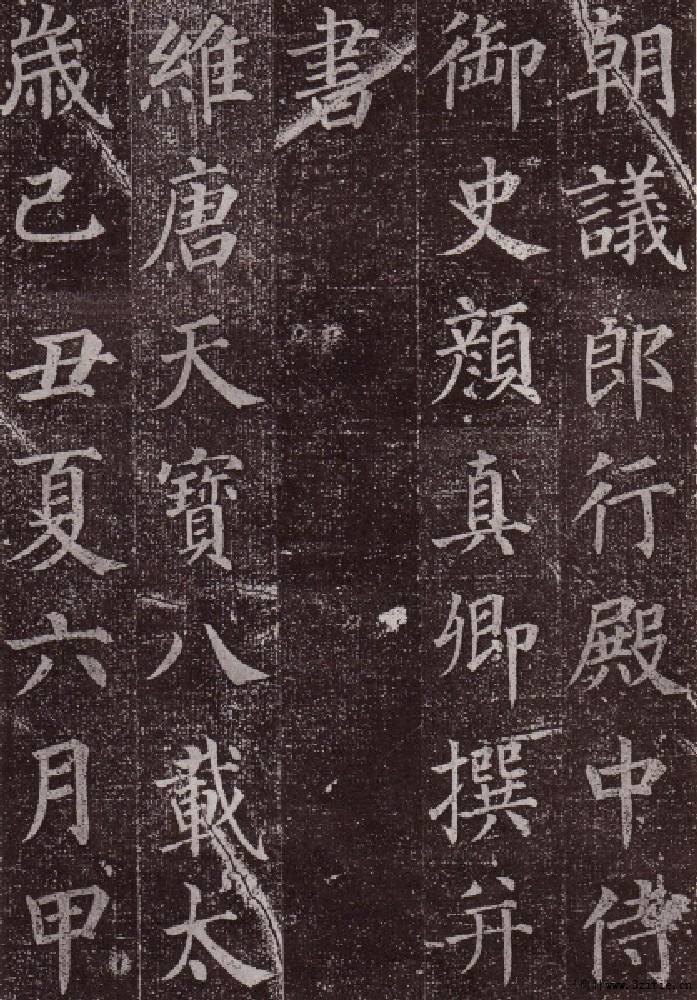 朝議郎行殿中侍
御史顔真卿撰并
書
維唐天寶八載太
歲己丑夏六月甲
www.3zitie.cn